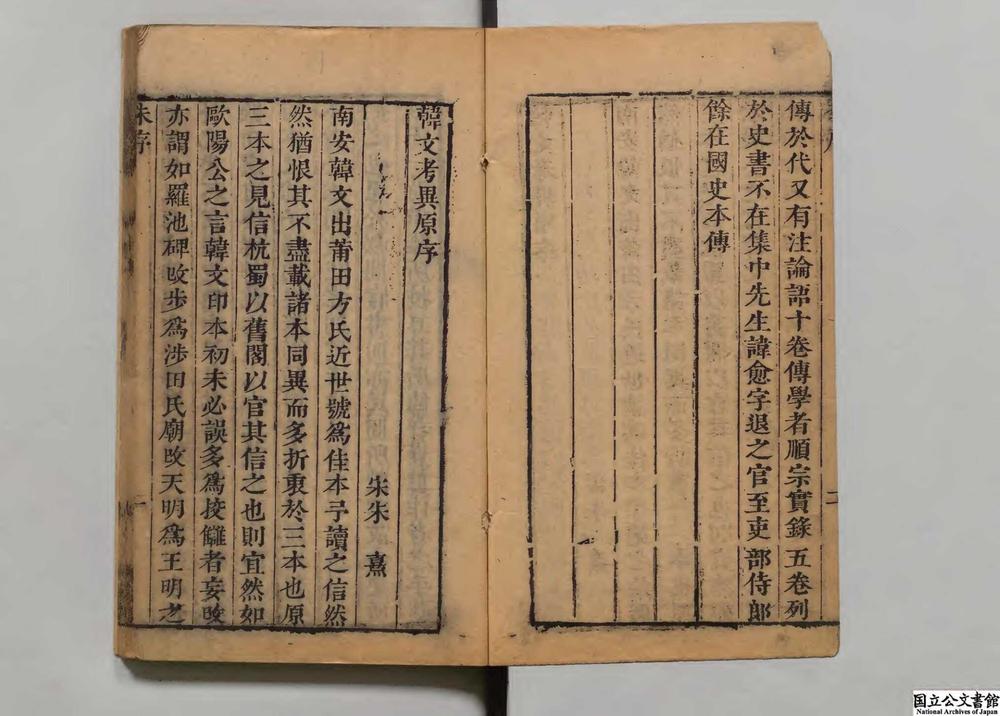 傳於代又有注論語十卷傳學者順宗實錄五卷列
於史書不在集中先生諱愈字退之官至吏部侍郎
餘在國史本傳
二
韓文考異原序
朱朱熹
南安韓文出莆田方氏近世號爲佳本予讀之信然
然猶恨其不盡載諸本同異而多折衷於三本也原
三本之見信杭蜀以舊閣以官其信之也則宜然如
歐陽公之言韓文印本初未必誤多爲挍讎者妄攺
亦謂如羅池碑攺步爲涉田氏廟攺天明爲王明之
朱序
一
国立公文書館
National Archives of Japan